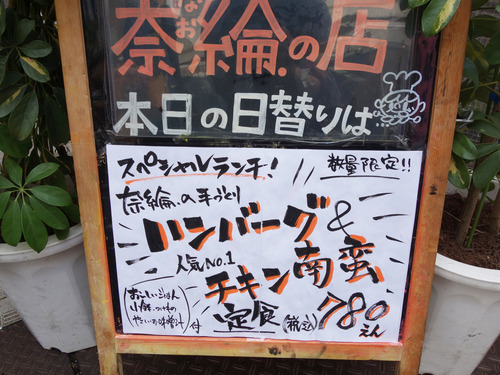 奈綸の店
本日の日替りは…
スペシャルランチ!
数量限定!!
奈綸の手づくり
ハンバーグ&
人気NO.1
チキン南蛮
定食
(税込)
780えん
おいしいごはん
小鉢、つけもの
やさいのお味噌汁
付